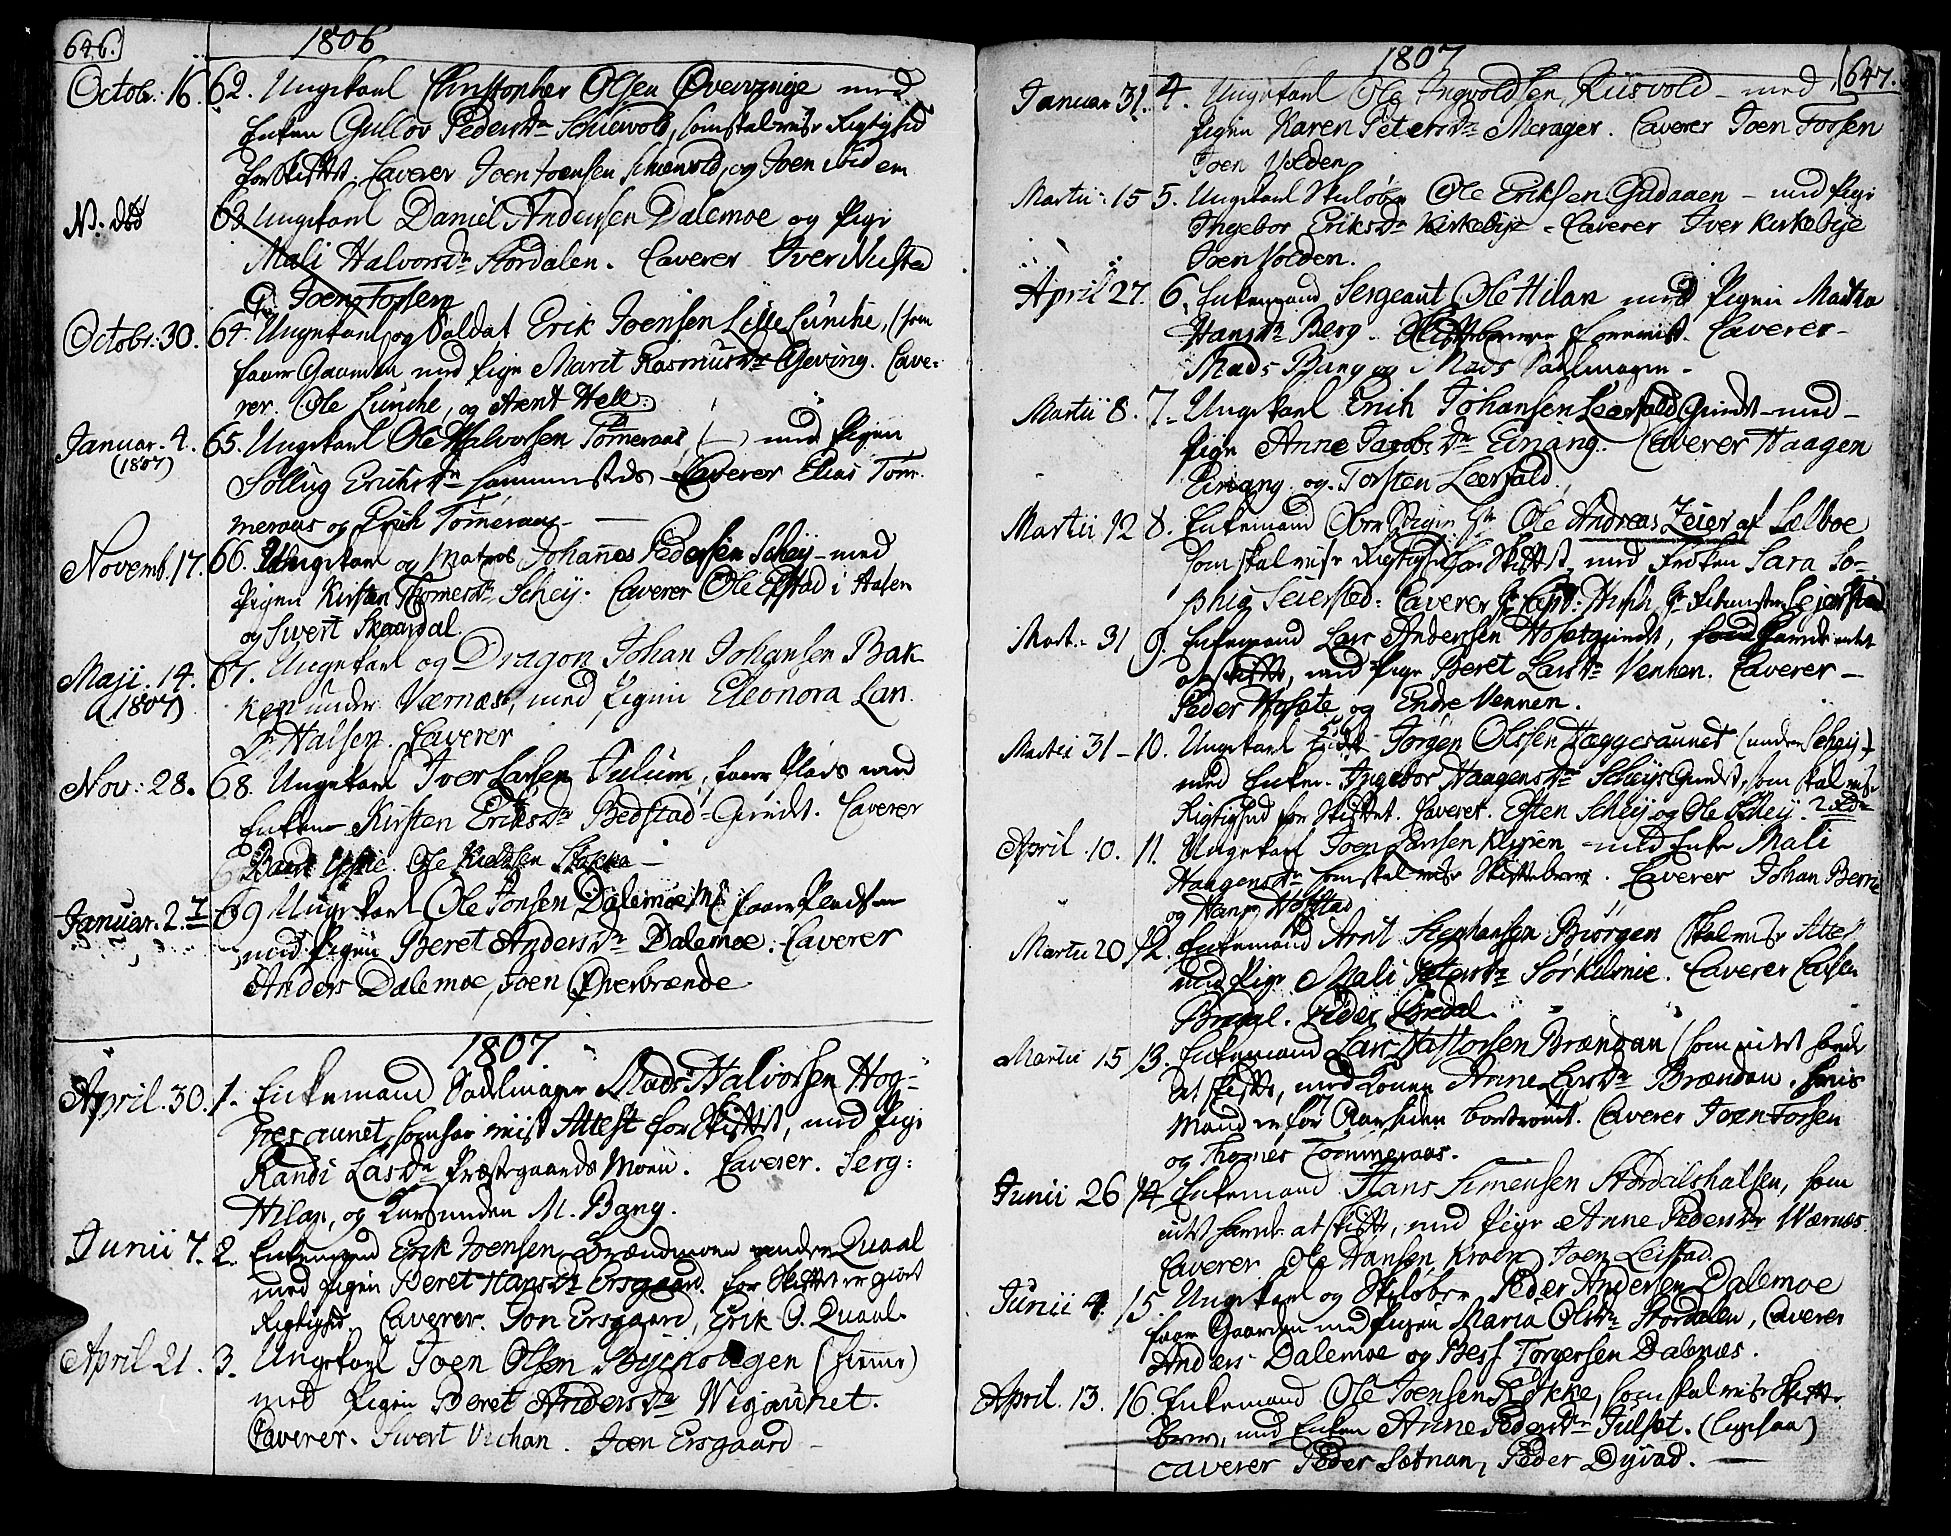 646.
1806
Octobr. 16. 62. Ungekarl Christopher Olsen Øvervinge med
Enken Gullov Peders Dr Schiewold, som skal vise Rigtighed
for Skiftet. Caverer Joen Joensen Schiewold, og Joen ibidem
63. Ungekarl Daniel Andersen Dalemoe og Pige
Mali Halvors Dr Størdalen. Caverer Iver Husted
og Joen Torsem
Octobr. 30. 64. Ungekarl og Soldat Erik Joensen Lille Lunche, (som
faaer Gaarden med Pige Marit Rasmus Dr Geving. Cave-
rer. Ole Lunche, og Arent Hell.
Januar. 4. 65. Ungekarl Ole Halvorsen Tømeraas (—) med Pigen
(1807)
Sollug Eriks Dr sammesteds. Caverer Elias Tøm-
meraas og Erich Tømeraas.
Novemb. 17. 66. Ungekarl og Matros Johanes Pedersen Scheij - med
Pigen Kirsten Thomes Dr Scheij. Caverer Ole Elstad i Aasen
og Sivert Skaardal.
Maji. 14. 67. Ungekarl og Dragon Johan Johansen Bak-
(1807)
ken under Værnæs, med Pigen Eleonora Lars
Dr Halsen. Caverer
Nov: 28. 68. Ungekarl Iver Larsen Julum, faaer Plads med
Enken Kirsten Eriks Dr Bedstad-Grindt. Caverer
Baard Ole Stokka -
Januar. 2 69 Ungekarl Ole Jonsen Dalemoe faaer Pladsen
med Pigen Beret Anders Dr Dalemoe. Caverer
Anders Dalemoe, Joen Øverbrænde
1807
April. 30. 1. Enkemand Sadelmager Mads Halvorsen Hog-
nesaunet, som har viist Attest for Skiftet, med Pige
Randi Lars Dr Præstegaards Moen. Caverer. Serg:
Hilan, og Kursmeden M. Bang.
Junii 7. 2. Enkemand Erik Joensen Brændmoen under Quaal
med Pigen Beret Hans Dr Ersgaard. for Skiftet er giort
Rigtighed. Caverer. Jon Ersgaard, Erik O. Quaal.
April 21. 3. Ungekarl Joen Olsen Bycholegen (hiemme)
med Pigen Beret Anders Dr Wigaunet.
Caverer. Sivert Vichan. Joen Ersgaard -
1807
647.
Januar 31. 4. Ungekarl Ole Ingvoldsen Riisvold - med
Pigen Karen Peters Dr Merager. Caverer Joen Torsen
Joen Volden
Martii 15 5. Ungekarl Skiløber Ole Eriksen Gudaaen - med Pige
Ingebor Eriks Dr Kirkebye - Caverer Iver Kirkebye
Joen Volden.
April 27. 6. Enkemand Sergeant Ole Hilan med Pigen Martha
Hans Dr Berg. Skiftebrev foreviist. Caverer -
Mads Bang og Mads Sadelmager -
Martii 8. 7. Ungekarl Erich Johansen Leerfald Grindt - med -
Pige Anne Jacobs Dr Einang. Caverer Haagen
Einang og Torsten Leerfald.
Martii 12 8. Enkemand Ole Andreas Zeier af Selboe
som skal vise Rigtighed for Skiftet, med Frøken Sara So-
phie Seiersted: Caverer Hr Capt: Hirsch, Seiersted
Mart. 31 9. Enkemand Lars Andersen Hofstgrindt,
at skifte, med Pige Beret Lars Dr Vennen. Caverer -
Peder Hofste og Endre Vennen.
Martii 31 - 10. Ungekarl Jørgen Olssen Hæggesaunet (under Scheij)
med Enken. Ingebor Haagens Dr Scheijs Grindt, som skal vise
Rigtighed for Skiftet. Caverer. Esten Scheij og Ole Scheij.
April. 10. 11. Ungekarl Joen Jensen Klyven - med Enke Mali
Haagens Dr som skal vise Skiftebrev. Caverer Johan Berre
og Hans Hofstad
Martii 20 12. Enkemand Arnt Stephansen Biørgen skal vise Attest
med Pige Mali Peters Dr Sørkilmie. Caverer
Peder
Martii 15 13. Enkemand Lars Hastorsen Brændan (som intet havde
at skifte, med Konen Anne Lars Dr Brændan. hvis
Mand er for 7 Aar siden bortrømt. Caverer Joen Torsen
og Thomes Tømmeraas.
Junii 26 14. Enkemand Hans Simensen Størdalshalsen, som
intet havde at skifte, med Pige Anne Peders Dr Wærnæs.
Caverer Ole Hansen Kroen, Joen Leistad.
Junii 4. 15. Ungekarl og Skiløber Peder Andersen Dalemoe
faaer Gaarden med Pigen Maria Ols Dr Størdalen, Caverer
Anders Dalemoe og Bess Torgersen Dalenæs.
April. 13. 16 Enkemand Ole Joensen Løkke, som skal vise Skifte-
brev, med Enken Anne Peders Dr Julset. (ligesaa)
Caverer Peder Sætnan, Peder Dyvad. -